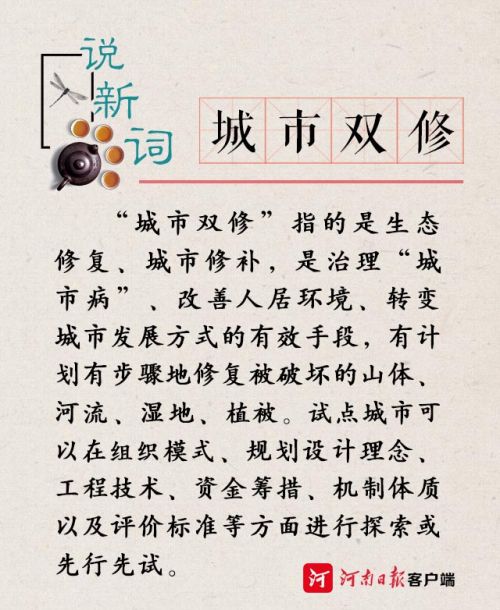 说新词
城市双修
“城市双修”指的是生态
修复、城市修补，是治理“城
市病”、改善人居环境、转变
城市发展方式的有效手段，有计
划有步骤地修复被破坏的山体、
河流、湿地、植被。试点城市可
以在组织模式、规划设计理念、
工程技术、资金筹措、机制体质
以及评价标准等方面进行探索或
先行先试。
河 河南日报客户端